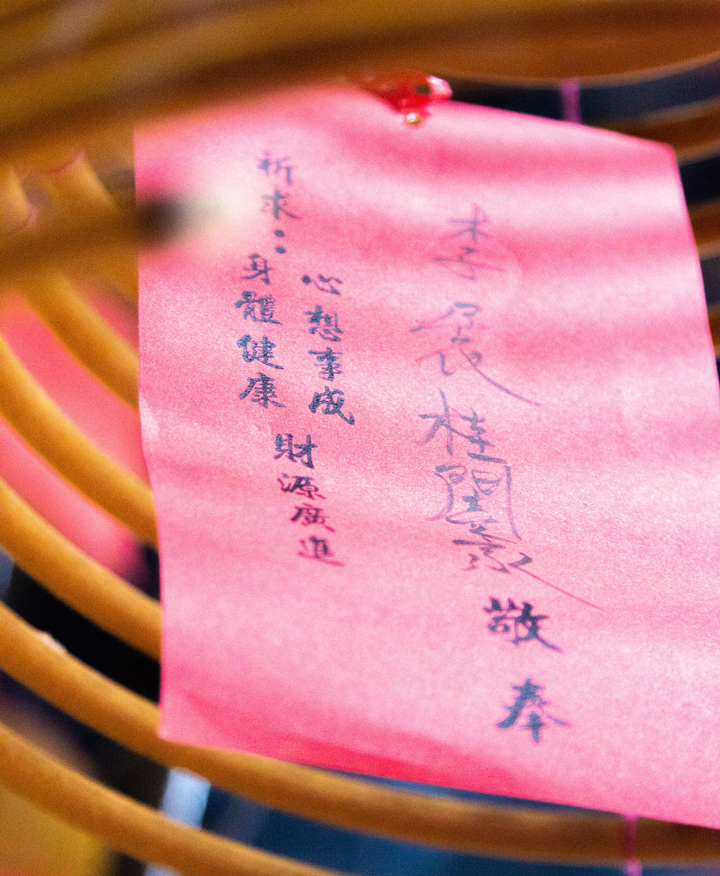 李桂闔家敬奉
祈求：
心想事成
身體健康
財源廣進